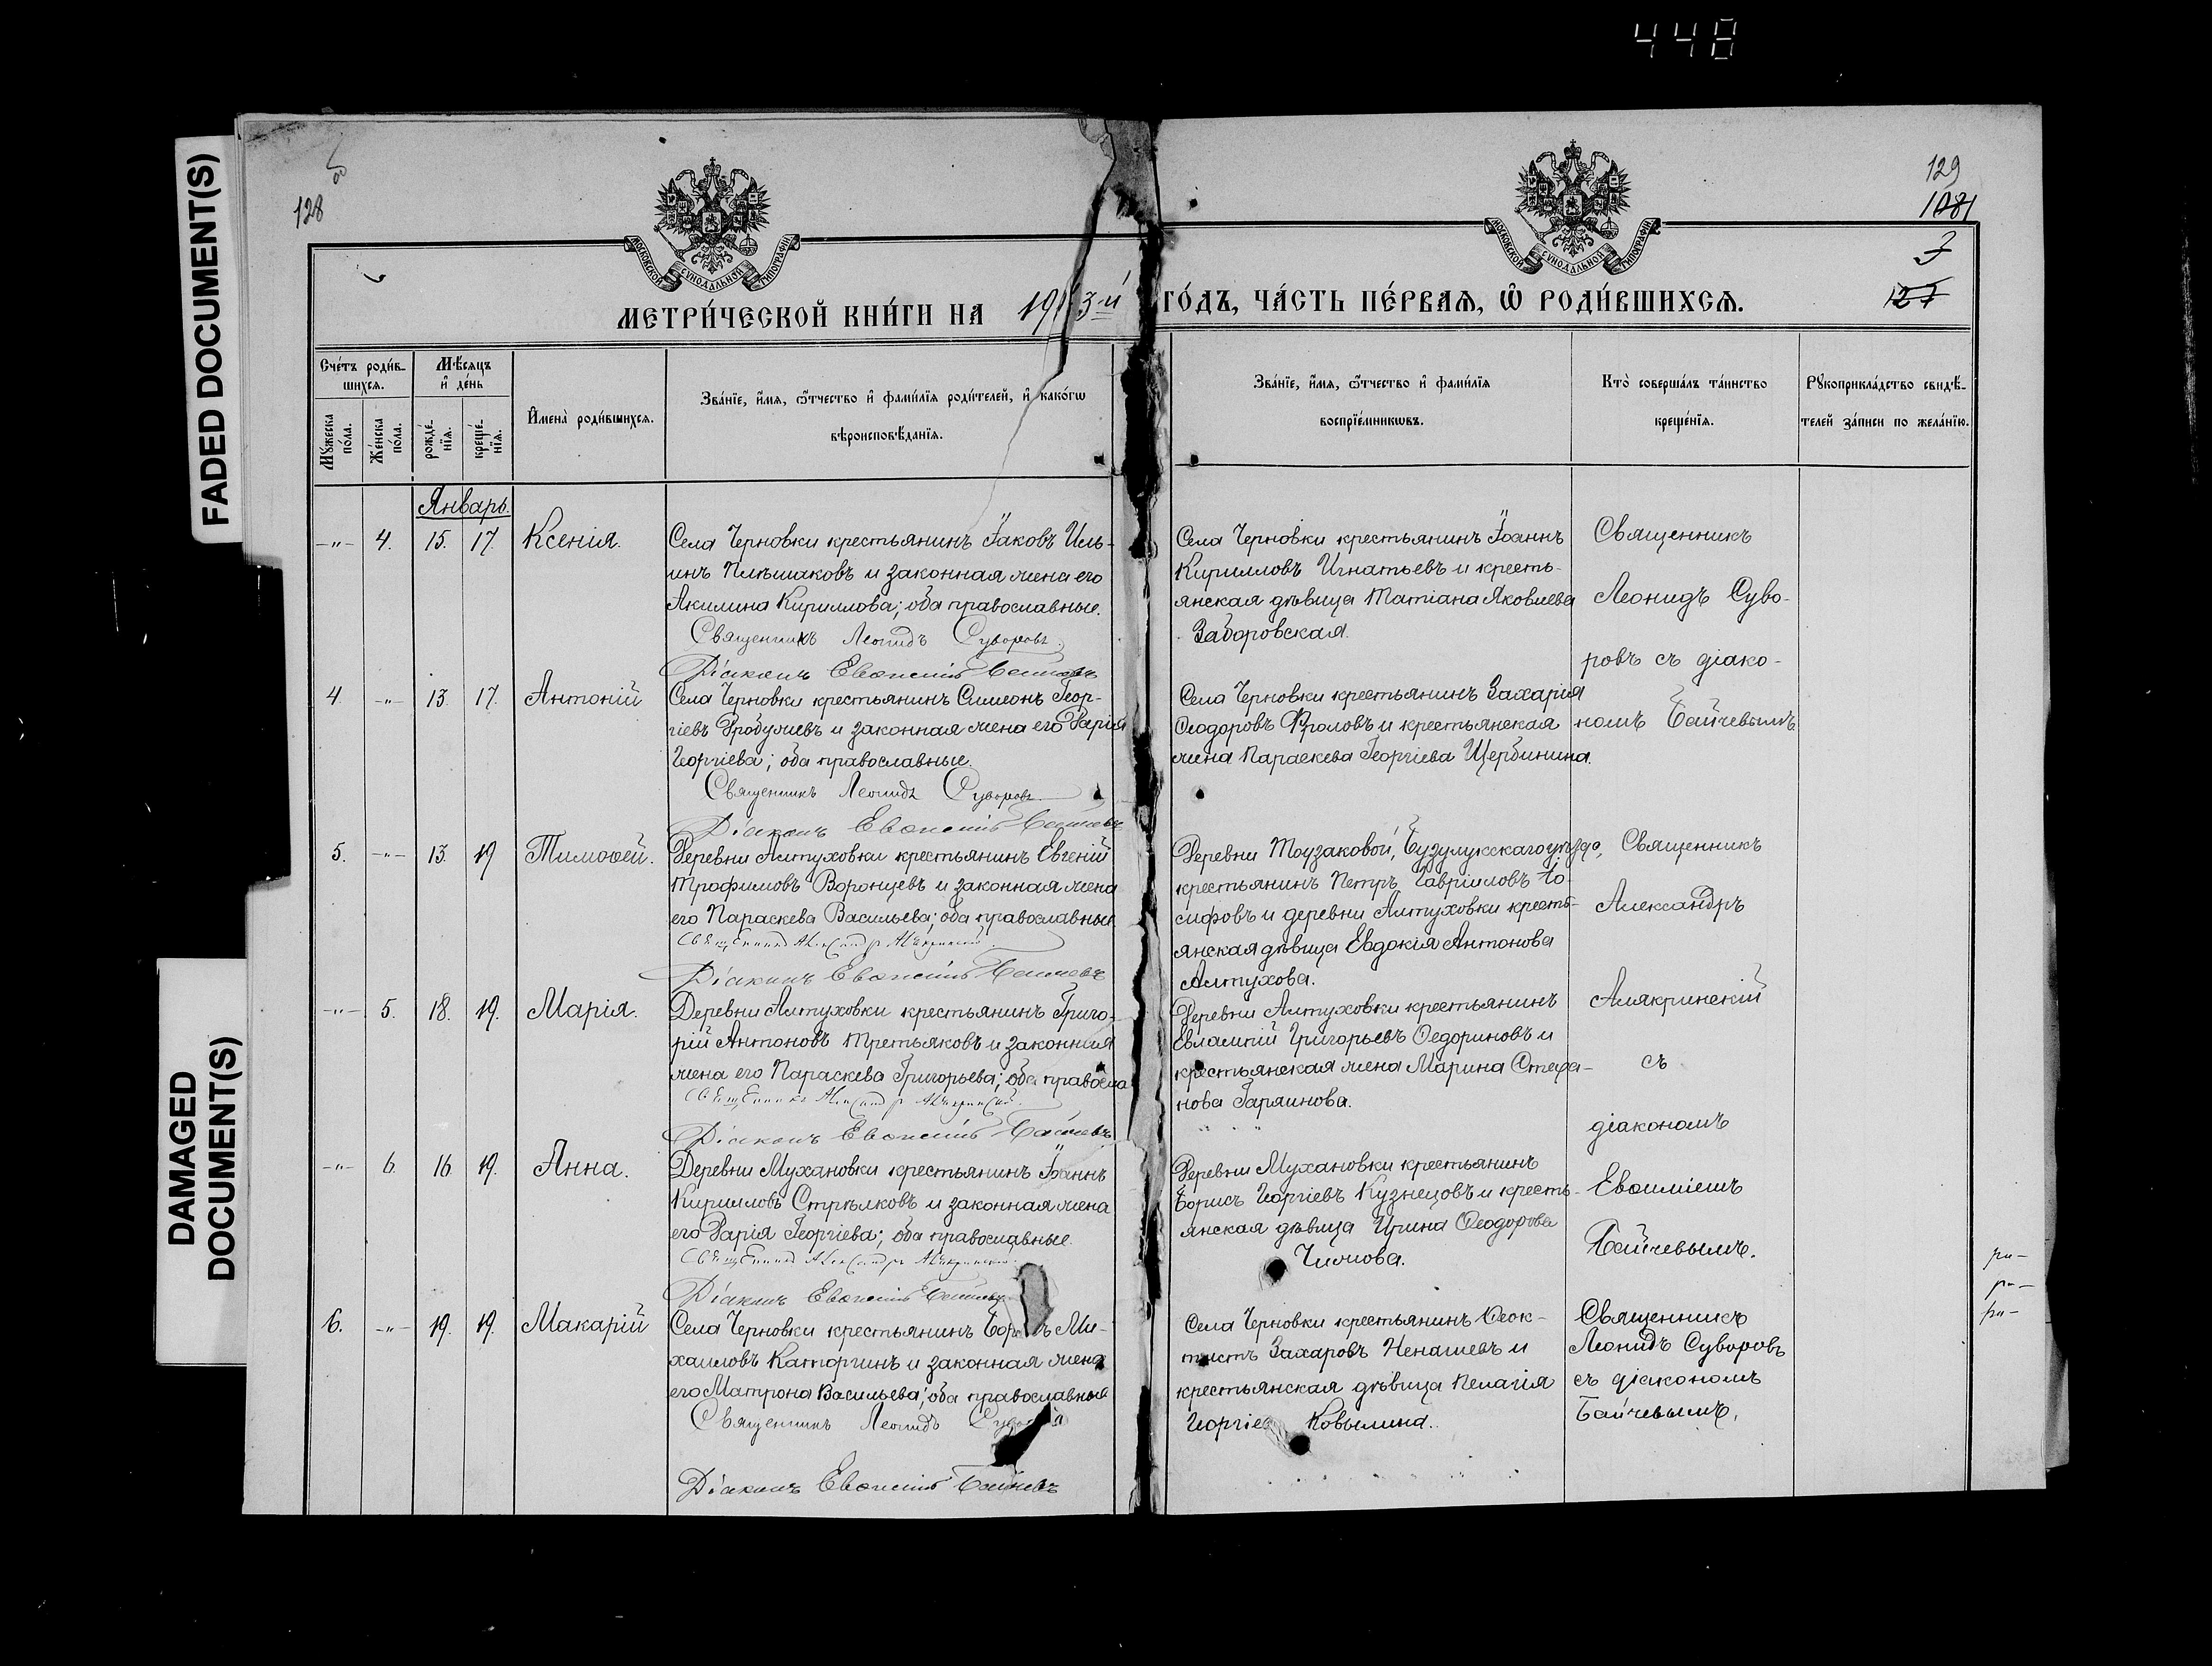 448
FADED DOCUMENT(S)
DAMAGED
DOCUMENT(S)
128
129
1081
3
127
МОСКОВСКОЙ СУНОДАЛЬНОЙ ТИПОГРАФІИ
МОСКОВСКОЙ СУНОДАЛЬНОЙ ТИПОГРАФІИ
МЕТРИ́ЧЕСКОЙ КНИ́ГИ НА 1913-й ГО́ДЪ, ЧА́СТЬ ПЕ́РВАѦ, Ѽ РОДИ́ВШИХСѦ.
Сче́тъ роди́в-
шихсѧ.
Мꙋ́жеска по́ла.
Же́нска по́ла.
Мѣ́сѧцъ
и҆ де́нь
рожде́-
нїѧ.
креще́-
нїѧ.
И҆мена̀ роди́вшихсѧ.
Зва́нїе, и҆́мѧ, ѻ҆́тчество и҆ фами́лїѧ роди́телей, и҆ како́гѡ
вѣроисповѣ́данїѧ.
Зва́нїе, и҆́мѧ, ѻ҆́тчество и҆ фами́лїѧ
воспрїе́мникѡвъ.
Кто̀ соверша́лъ та́инство
креще́нїѧ.
Рꙋкоприкла́дство свидѣ́-
телей за́писи по жела́нїю.
Январь.
-"- 4. 15. 17. Ксенія.
Села Черновки крестьянинъ Іаковъ Иль-
инъ Плѣшаковъ и законная жена его
Акилина Кириллова; оба православные.
Священникъ Леонидъ Суворовъ
Діаконъ Евѳимій Байчевъ
Села Черновки крестьянинъ Іоаннъ
Кирилловъ Игнатьевъ и кресть-
янская дѣвица Татіана Яковлева
Заборовская.
Священникъ
Леонидъ Суво-
ровъ съ діако-
номъ Байчевымъ.
4. -"- 13. 17. Антоній
Села Черновки крестьянинъ Симеонъ Геор-
гіевъ и законная жена его Дарія
Георгіева; оба православные.
Священникъ Леонидъ Суворовъ
Діаконъ Евѳимій Байчевъ
Села Черновки крестьянинъ Захарія
Ѳеодоровъ Фроловъ и крестьянская
жена Параскева Георгіева Щербинина.
5. -"- 13. 19 Тимоѳей.
Деревни Алтуховки крестьянинъ Евгеній
Трофимовъ Воронцевъ и законная жена
его Параскева Васильева; оба православные
Священникъ Александръ Алякринскій.
Діаконъ Евѳимій Байчевъ
Деревни Тоузаковой, Бузулукскаго уѣзда,
крестьянинъ Петръ Гавриловъ Іо-
сифовъ и деревни Алтуховки кресть-
янская дѣвица Евдокія Антонова
Алтухова.
Священникъ
Александръ
Алякринскій
съ
діакономъ
Евѳиміемъ
Байчевымъ.
-"- 5. 18. 19. Марія.
Деревни Алтуховки крестьянинъ Григо-
рій Антоновъ Третьяковъ и законная
жена его Параскева Григорьева; оба правосла
Священникъ Александръ Алякринскій.
Діаконъ Евѳимій Байчевъ
Деревни Алтуховки крестьянинъ
Евлампій Григорьевъ Ѳедориновъ и
крестьянская жена Марина Стефа-
нова Гаряинова.
-"- 6. 16 19. Анна.
Деревни Мухановки крестьянинъ Іоаннъ
Кирилловъ Стрѣлковъ и законная жена
его Дарія Георгіева; оба православные.
Священникъ Александръ Алякринскій.
Діаконъ Евѳимій Байчевъ
Деревни Мухановки крестьянинъ
Борисъ Георгіевъ Кузнецовъ и кресть-
янская дѣвица Ирина Ѳеодорова
6. -"- 19. 19. Макарій
Села Черновки крестьянинъ Ми-
хаиловъ Каторгинъ и законная жена
его Матрона Васильева; оба православные
Священникъ Леонидъ Суворовъ
Діаконъ Евѳимій Байчевъ
Села Черновки крестьянинъ Ѳеок-
тистъ Захаровъ Ненашевъ и
крестьянская дѣвица Пелагія
Георгіев Ковылина.
Священникъ
Леонидъ Суворовъ
съ діакономъ
Байчевымъ.